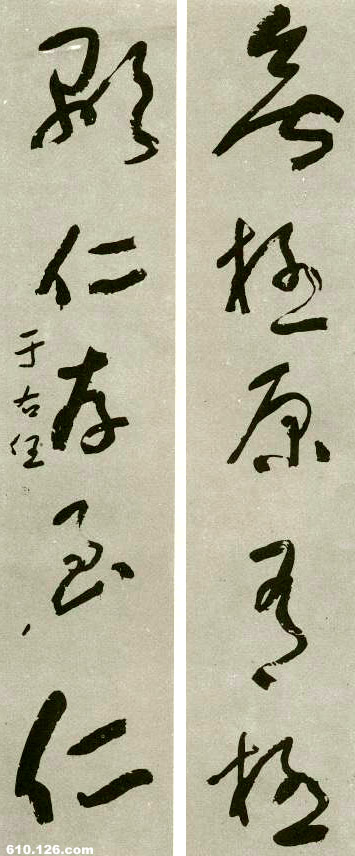 無極原有極
顯仁存至仁
于右任
610.126.com